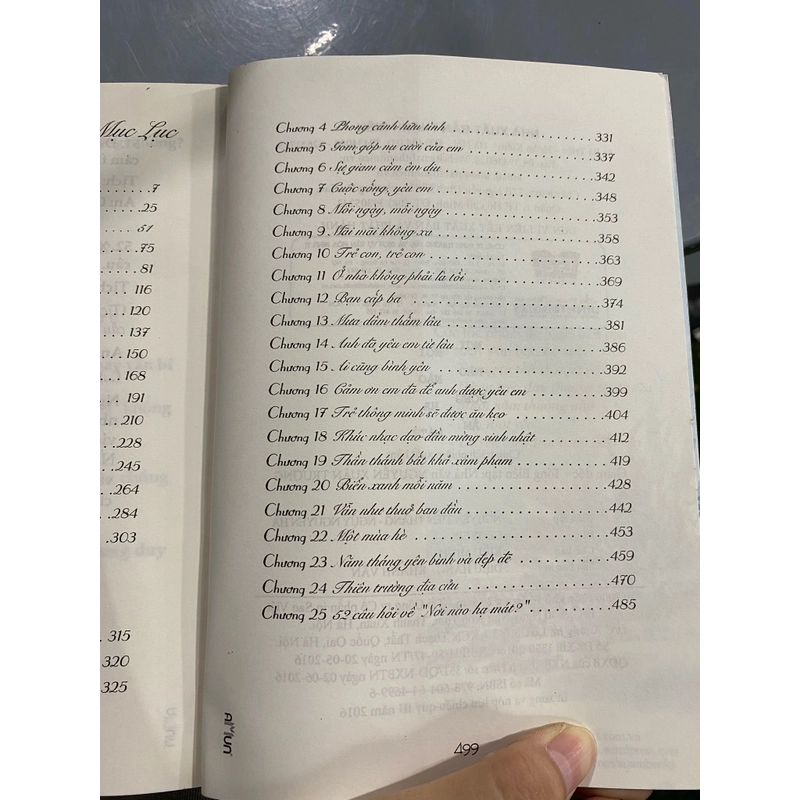 Mục Lục
7
25
51
75
81
116
120
137
150
168
191
210
228
245
264
284
303
315
320
325
Chương 4 Phong cảnh hữu tình 331
Chương 5 Gom góp nụ cười của em 337
Chương 6 Sự giam cầm êm dịu 342
Chương 7 Cuộc sống, yêu em 348
Chương 8 Mỗi ngày, mỗi ngày 353
Chương 9 Mãi mãi không xa 358
Chương 10 Trẻ con, trẻ con 363
Chương 11 Ở nhà không phải là tồi 369
Chương 12 Bạn cấp ba 374
Chương 13 Mưa dầm thấm lâu 381
Chương 14 Anh đã yêu em từ lâu 386
Chương 15 Ai cũng bình yên 392
Chương 16 Cảm ơn em đã để anh được yêu em 399
Chương 17 Trẻ thông minh sẽ được ăn kẹo 404
Chương 18 Khúc nhạc dạo đầu mừng sinh nhật 412
Chương 19 Thần thánh bất khả xâm phạm 419
Chương 20 Biển xanh mỗi năm 428
Chương 21 Vẫn như thuở ban đầu 442
Chương 22 Một mùa hè 453
Chương 23 Năm tháng yên bình và đẹp đẽ 459
Chương 24 Thiên trường địa cửu 470
Chương 25 52 câu hỏi về "Nơi nào hạ mát?" 485
499